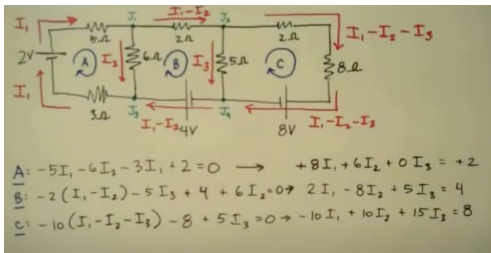 I₁ J₁ I₁-I₂ J₂
5Ω 2Ω 2Ω I₁-I₂-I₃
2V A I₂ 6Ω B I₃ 5Ω C 8Ω
I₁ 3Ω J₃ I₁-I₂ 4V J₄ 8V I₁-I₂-I₃
A: -5I₁-6I₂-3I₁+2=0 → +8I₁+6I₂+0I₃=+2
B: -2(I₁-I₂)-5I₃+4+6I₂=0→ 2I₁-8I₂+5I₃=4
C: -10(I₁-I₂-I₃)-8+5I₃=0→-10I₁+10I₂+15I₃=8